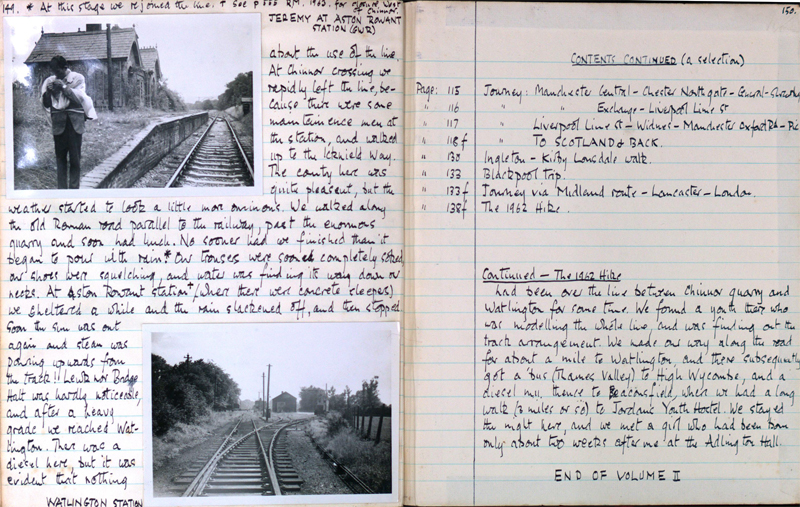 149. * At this stage we rejoined the line. † See p 555 R.M. 1963. for closure West of Chinnor.
JEREMY AT ASTON ROWANT
STATION (GWR)
about the use of the line.
At Chinnor crossing we
rapidly left the line, be-
cause there were some
maintainence men at
the station, and walked
up to the Icknield Way.
The county here was
quite pleasent, but the
weather started to look a little more ominous. We walked along
the old Roman road parallel to the railway, past the enormous
quarry and soon had lunch. No sooner had we finished than it
began to pour with rain.* Our trousers were soon completely soaked
our shoes were squelching, and water was finding its way down our
necks. At Aston Rowant station† (where there were concrete sleepers)
we sheltered a while and the rain slackened off, and then stopped
Soon the sun was out
again and steam was
pouring upwards from
the track!! Lewknor Bridge
Halt was hardly noticeable,
and after a heavy
grade we reached Wat-
lington. There was a
diesel here, but it was
evident that nothing
WATLINGTON STATION
150.
CONTENTS CONTINUED (a selection)
Page: 115 Journey: Manchester Central - Chester Northgate - General - Shrewsbury
" 116 " Exchange - Liverpool Lime St
" 117 " Liverpool Lime St - Widnes - Manchester Oxford Rd - Pic
" 118f TO SCOTLAND & BACK.
" 130 Ingleton - Kirby Lonsdale walk.
" 133 Blackpool Trip.
" 133f Journey via Midland route - Lancaster - London.
" 138f The 1962 Hike.
Continued - The 1962 Hike
had been over the line between Chinnor quarry and
Watlington for some time. We found a youth there who
was modelling the whole line, and was finding out the
track arrangement. We made our way along the road
for about a mile to Watlington, and there subsequently
got a 'bus (Thames Valley) to High Wycombe, and a
diesel m.u. thence to Beaconsfield, where we had a long
walk (3 miles or so) to Jordans Youth Hostel. We stayed
the night here, and we met a girl who had been born
only about two weeks after me at the Adlington Hall.
END OF VOLUME II